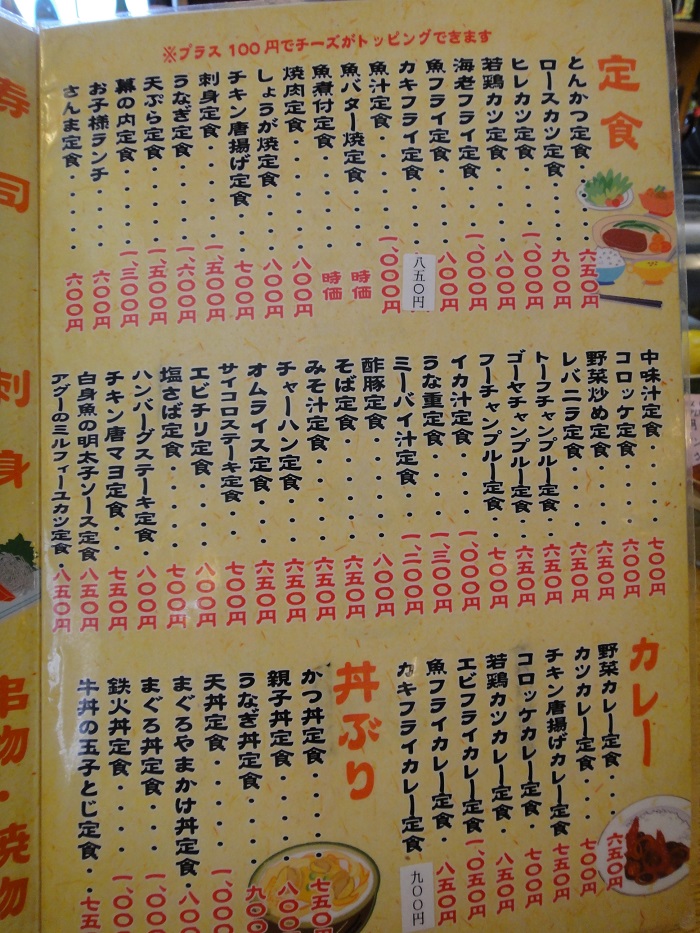 ※プラス100円でチーズがトッピングできます
定食
とんかつ定食・・・・・六五〇円
ロースカツ定食・・・・九〇〇円
ヒレカツ定食・・・・一、〇〇〇円
若鶏カツ定食・・・・・八〇〇円
海老フライ定食・・・一、〇〇〇円
魚フライ定食・・・・・八〇〇円
カキフライ定食・・・・八五〇円
魚汁定食・・・・・・一、〇〇〇円
魚バター焼定食・・・・時価
魚煮付定食・・・・・・時価
焼肉定食・・・・・・・八〇〇円
しょうが焼定食・・・・八〇〇円
チキン唐揚げ定食・・・七〇〇円
刺身定食・・・・・・一、五〇〇円
うなぎ定食・・・・・一、六〇〇円
天ぷら定食・・・・・一、五〇〇円
幕の内定食・・・・・一、三〇〇円
お子様ランチ・・・・・六〇〇円
さんま定食・・・・・・六〇〇円
中味汁定食・・・・・七〇〇円
コロッケ定食・・・・六〇〇円
野菜炒め定食・・・・六五〇円
レバニラ定食・・・・六五〇円
トーフチャンプルー定食・・六五〇円
ゴーヤチャンプルー定食・・六五〇円
フーチャンプルー定食・・七〇〇円
イカ汁定食・・・・一、〇〇〇円
うな重定食・・・・一、三〇〇円
ミーバイ汁定食・・一、二〇〇円
酢豚定食・・・・・・八〇〇円
そば定食・・・・・・六五〇円
みそ汁定食・・・・・六五〇円
チャーハン定食・・・六五〇円
オムライス定食・・・六五〇円
サイコロステーキ定食・・七〇〇円
エビチリ定食・・・・八〇〇円
塩さば定食・・・・・七〇〇円
ハンバーグステーキ定食・八〇〇円
チキン唐マヨ定食・・七五〇円
白身魚の明太子ソース定食 八五〇円
アグーのミルフィーユカツ定食・八五〇円
カレー
野菜カレー定食・・・六五〇円
カツカレー定食・・・七〇〇円
チキン唐揚げカレー定食 七五〇円
コロッケカレー定食・七〇〇円
若鶏カツカレー定食・八五〇円
エビフライカレー定食 一、〇五〇円
魚フライカレー定食・八五〇円
カキフライカレー定食 九〇〇円
丼ぶり
かつ丼定食・・・・・七五〇円
親子丼定食・・・・・八〇〇円
うなぎ丼定食・・・・九〇〇
天丼定食・・・・・一、〇〇〇
まぐろやまかけ丼定食・八〇〇
まぐろ丼定食・・・一、〇〇〇
鉄火丼定食・・・・一、〇〇
牛丼の玉子とじ定食・・七五
寿司
刺身
串物・焼物